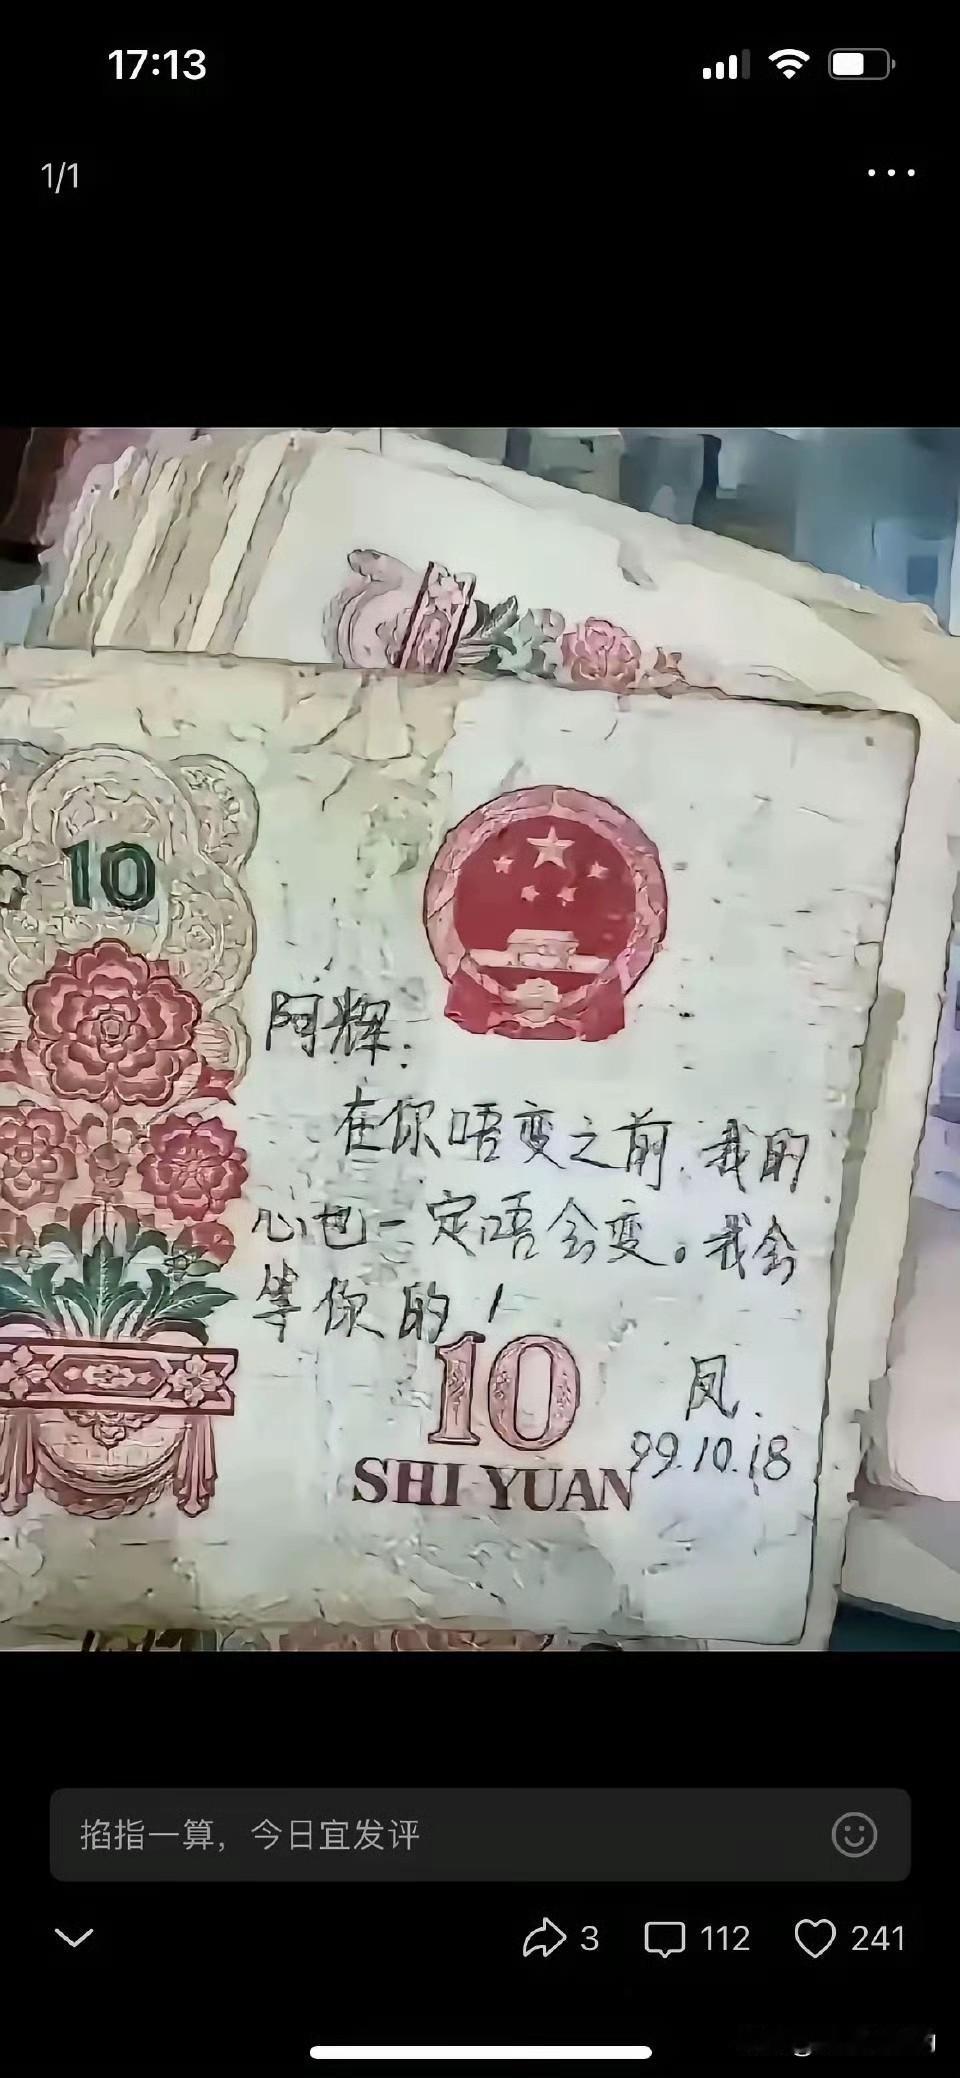 17:13
1/1
10
阿辉.
在你唔变之前.我的
心也一定唔会变。我会
等你的！
10
凤.
SHI YUAN
99.10.18
掐指一算，今日宜发评
3
112
241